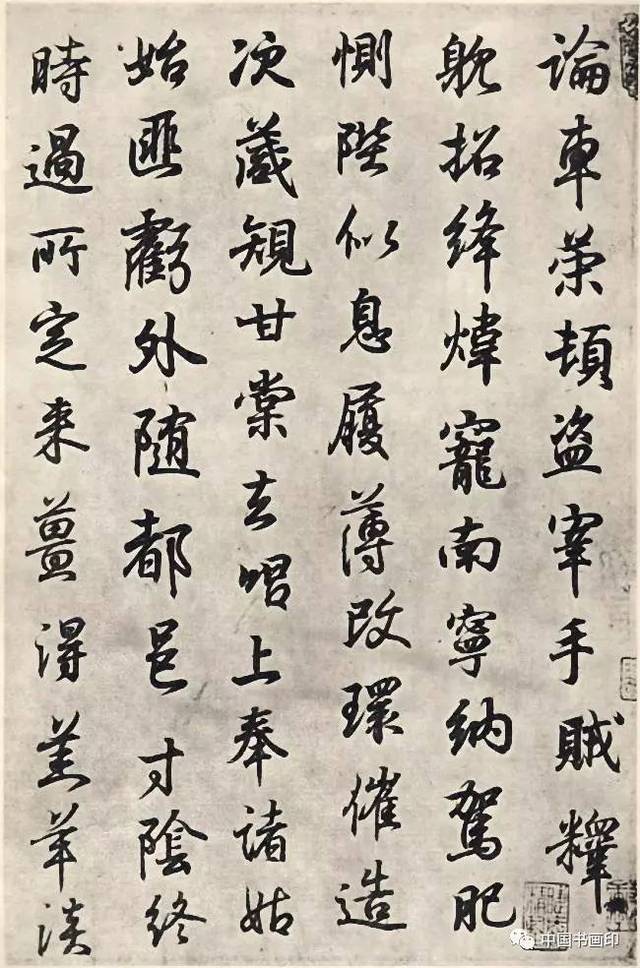 論車荣頓盜宰手賊釋
躭招絳煒寵南寧納駕肥
惻陛似息履薄改環催造
次蔵規甘棠去唱上奉諸姑
始匪虧外随都邑寸陰終
時過所定来薑得羔羊淡
中国书画印